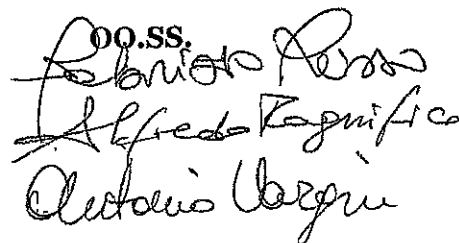 OO.SS.
Fabrizio Russo
Alfredo Magnifico
Antonio Vargiu